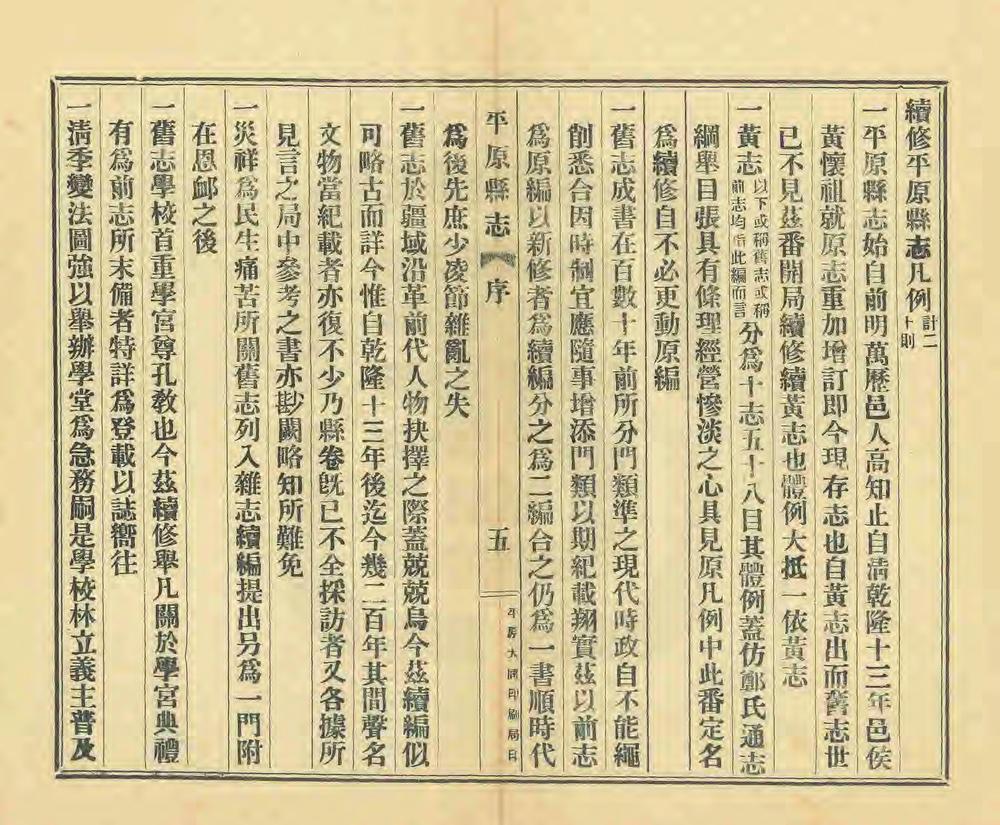 續修平原縣志凡例計二十則
一平原縣志始自前明萬歷邑人高知止自淸乾隆十三年邑侯
黃懷祖就原志重加增訂即今現存志也自黃志出而舊志世
已不見茲番開局續修續黃志也體例大抵一依黃志
一黃志以下或稱舊志或稱前志均指此編而言分爲十志五十八目其體例蓋仿鄭氏通志
綱舉目張具有條理經營慘淡之心具見原凡例中此番定名
爲續修自不必更動原編
一舊志成書在百數十年前所分門類準之現代時政自不能繩
削悉合因時制宜應隨事增添門類以期紀載翔實茲以前志
爲原編以新修者爲續編分之爲二編合之仍爲一書順時代
平原縣志 序 五 平原大同印刷局印
爲後先庶少凌節雜亂之失
一舊志於疆域沿革前代人物抉擇之際蓋兢兢焉今茲續編似
可略古而詳今惟自乾隆十三年後迄今幾二百年其間聲名
文物當紀載者亦復不少乃縣卷旣已不全採訪者又各據所
見言之局中參考之書亦尠闕略知所難免
一災祥爲民生痛苦所關舊志列入雜志續編提出另爲一門附
在恩卹之後
一舊志學校首重學宮尊孔敎也今茲續修舉凡關於學宮典禮
有爲前志所未備者特詳爲登載以誌嚮往
一淸季變法圖強以舉辦學堂爲急務嗣是學校林立義主普及